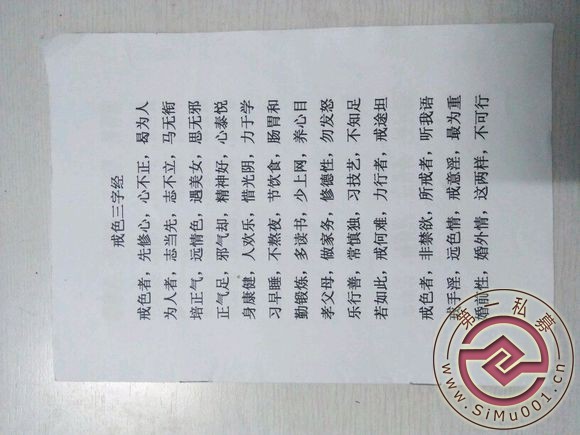 戒色三字经
戒色者，先修心，心不正，曷为人
为人者，志当先，志不立，马无衔
培正气，远情色，遇美女，思无邪
正气足，邪气却，精神好，心泰悦
身康健，人欢乐，惜光阴，力于学
习早睡，不熬夜，节饮食，肠胃和
勤锻炼，多读书，少上网，养心目
孝父母，做家务，修德性，勿发怒
乐行善，常慎独，习技艺，不知足
若如此，戒何难，力行者，戒途坦
戒色者，非禁欲，所戒者，听我语
戒手淫，远色情，戒意淫，最为重
婚前性，婚外情，这两样，不可行
第一私募
www.SiMu001.cn